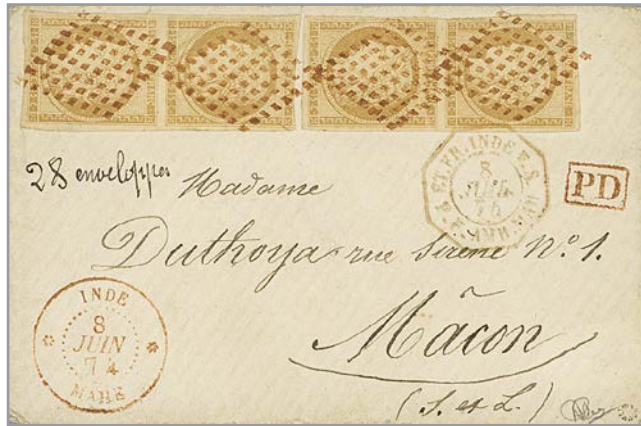 28 enveloppes
Madame
Duthoya rue Sirène N.º 1.
Mâcon
(S. et L.)
PD
INDE
8
JUIN
74
MAHE
8
JUIL
74